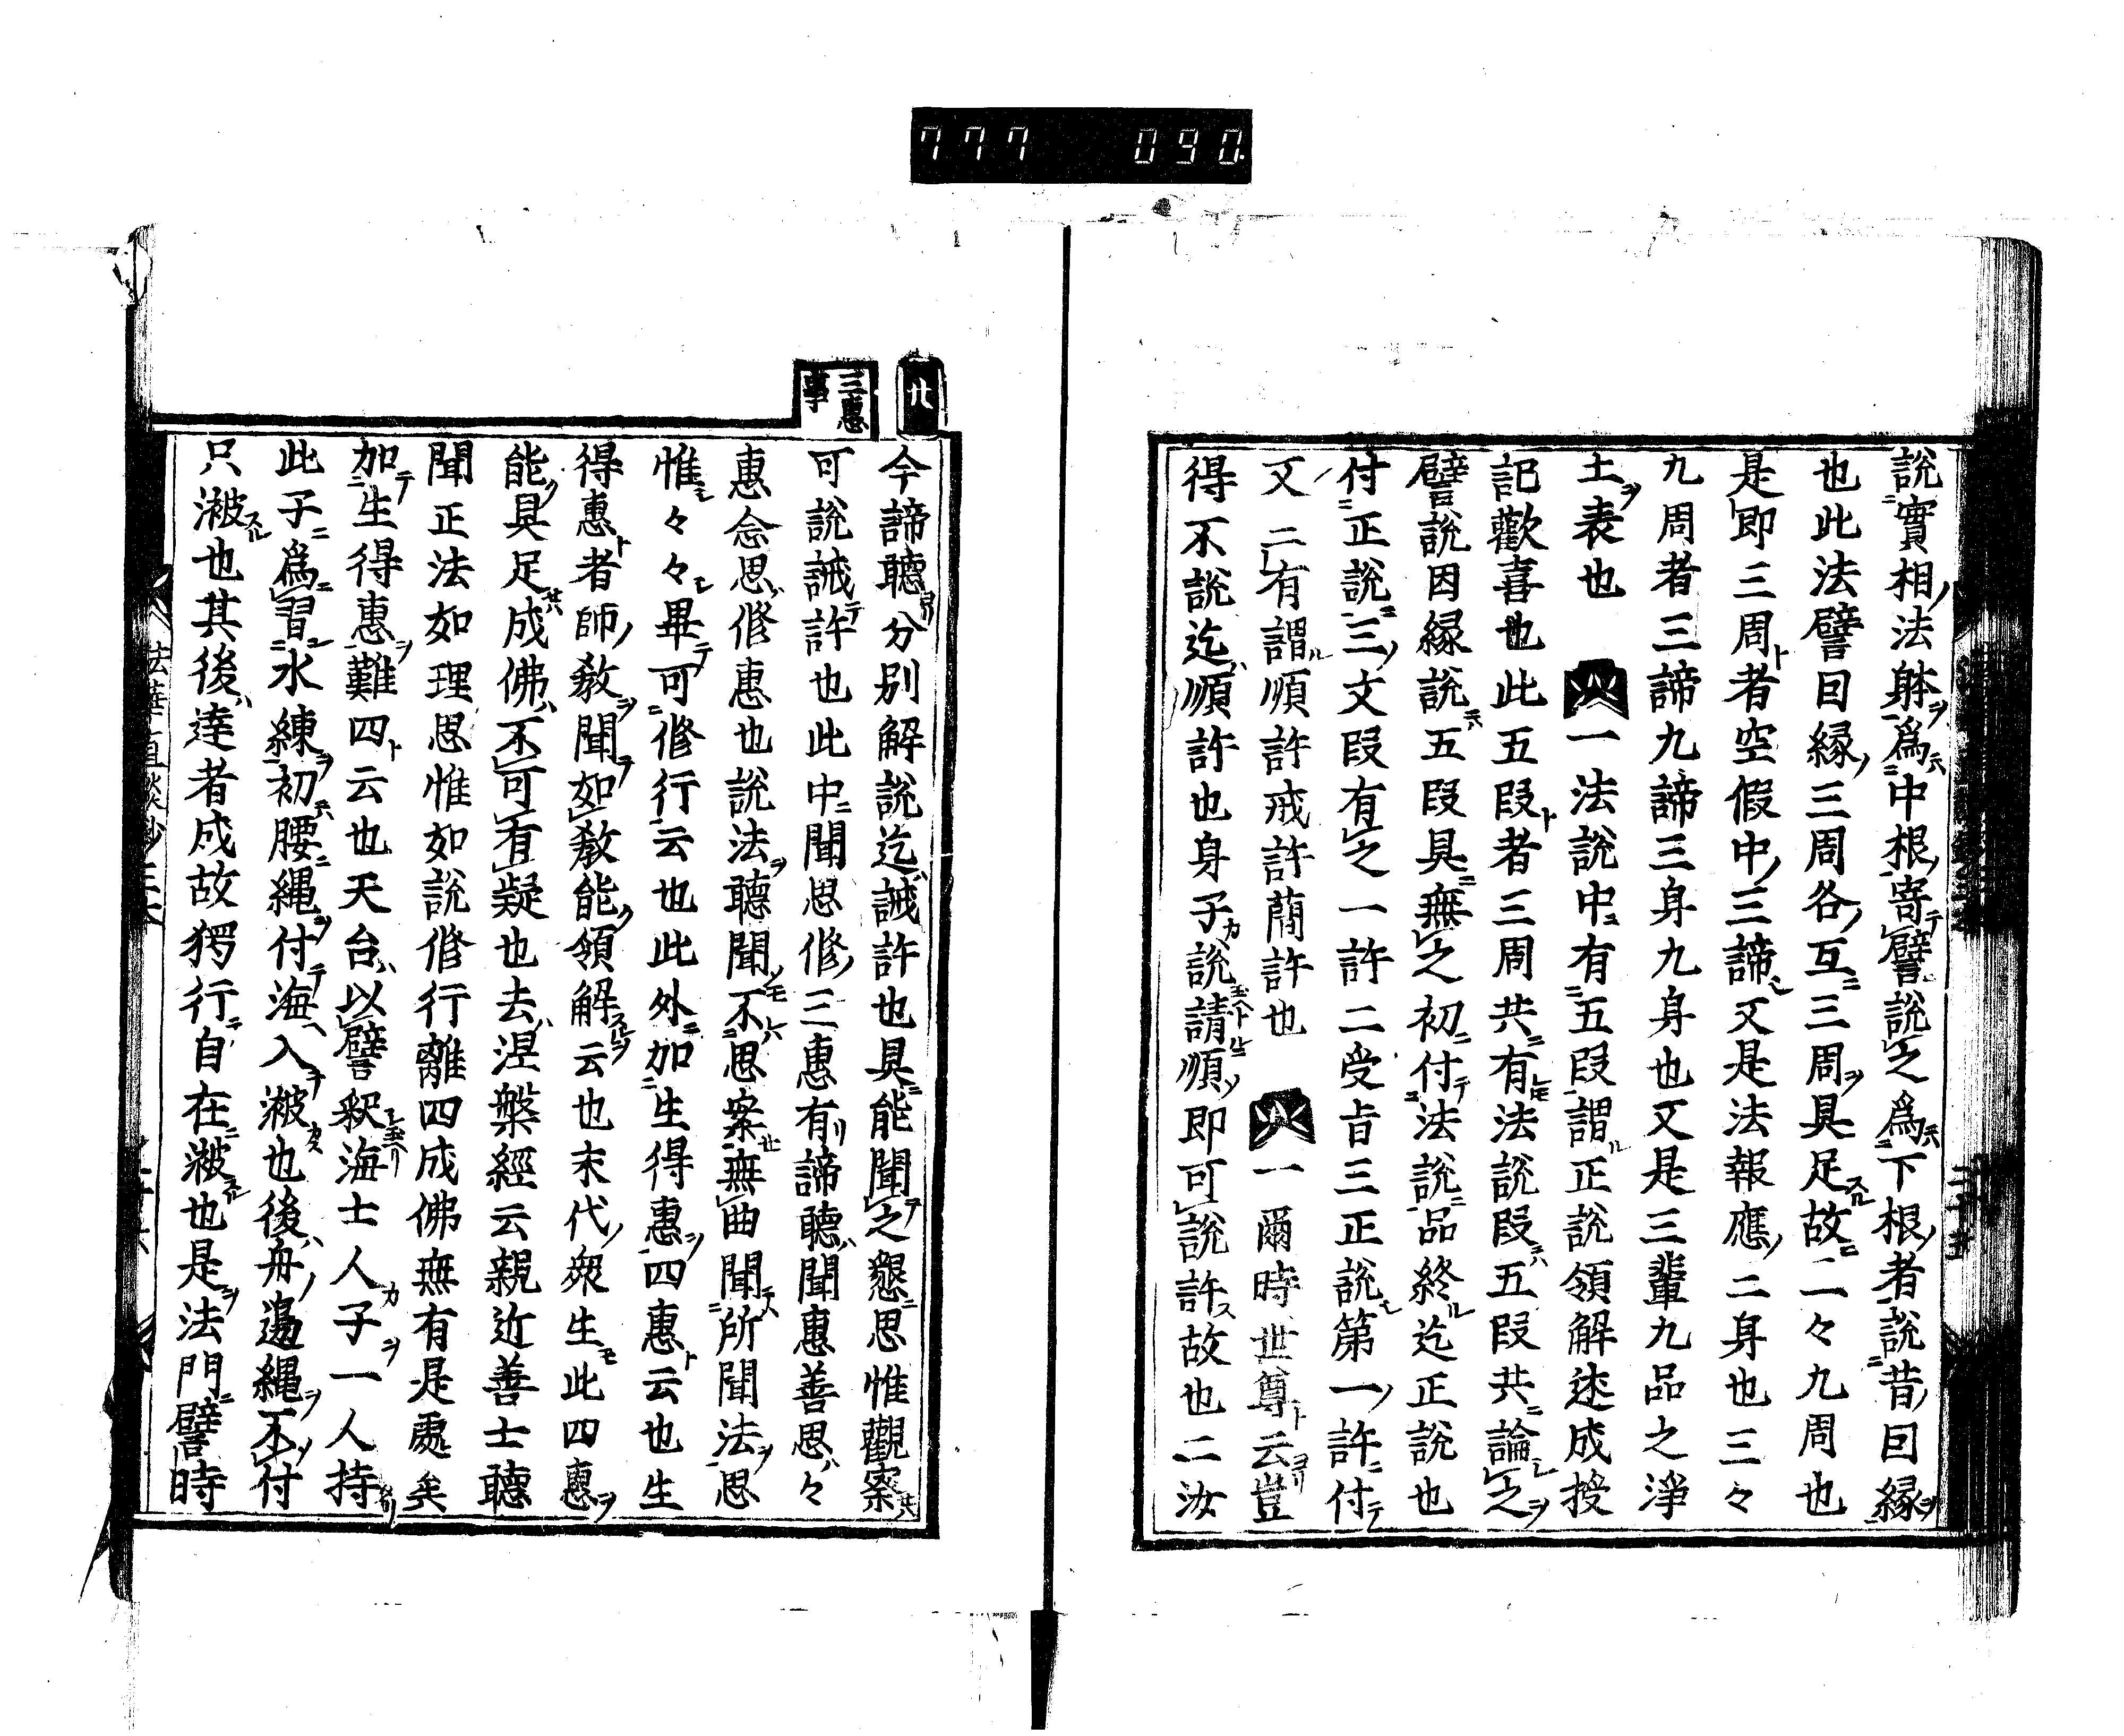 777 090
説實相法躰爲中根寄譬説之爲下根者説昔因縁
也此法譬因縁三周各互三周具足故二々九周也
是即三周者空假中三諦又是法報應二身也三々
九周者三諦九諦三身九身也又是三輩九品之淨
土表也 一法説中有五段謂正説領解述成授
記歡喜也此五段者三周共有法説段五段共論之
譬説因縁説五段具無之初付法説品終迄正説也
付正説三文段有之一許二受旨三正説第一許付
又 二有謂順許戒許蕳許也 一爾時世尊云豈
得不説迄順許也身子説請順即可説許故也二汝
廾
三惠事
今諦聽分別解説迄誡許也具能聞之懇思惟觀案
可説誡許也此中聞思修三惠有諦聽聞惠善思々
惠念思修惠也説法聽聞不思案無曲聞所聞法思
惟々々畢可修行云也此外加生得惠四惠云也生
得惠者師教聞如教能領解云也末代衆生此四惠
能具足成佛不可有疑也去涅槃經云親近善士聽
聞正法如理思惟如説修行離四成佛無有是處矣
加生得惠難四云也天台以譬釈海士人子一人持
此子爲習水練初腰縄付海入溵也後舟邉縄不付
只溵也其後達者成故猰行自在溵也是法門譬時
法華直談鈔三本